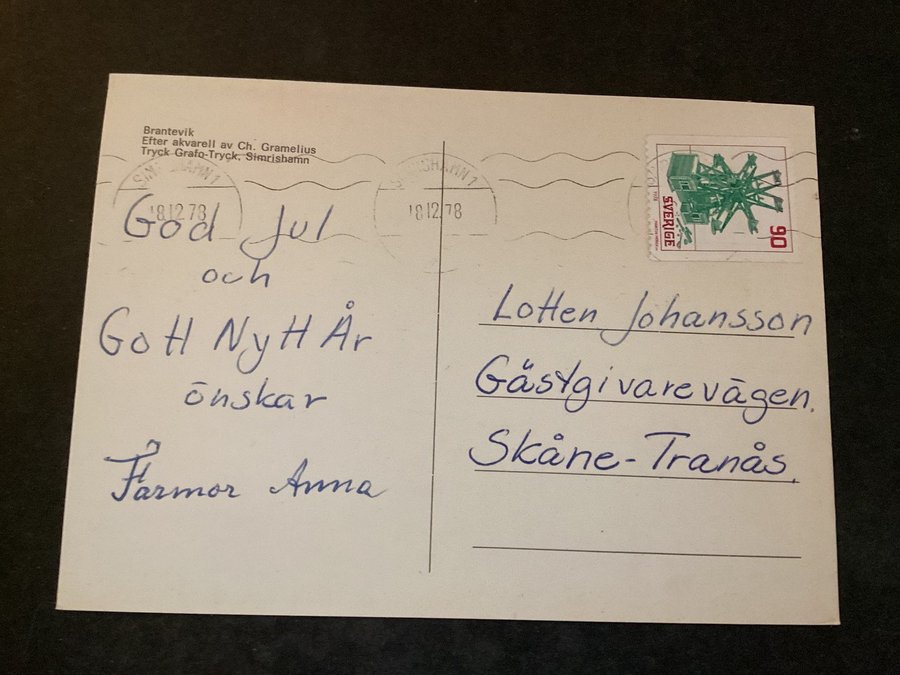 Brantevik
Efter akvarell av Ch. Gramelius
Tryck Grafo-Tryck, Simrishamn
SIMRISHAMN 1
18.12.78
SIMRISHAMN 1
18.12.78
SVERIGE
90
God Jul
och
Gott Nytt År
önskar
Farmor Anna
Lotten Johansson
Gästgivarevägen.
Skåne-Tranås.